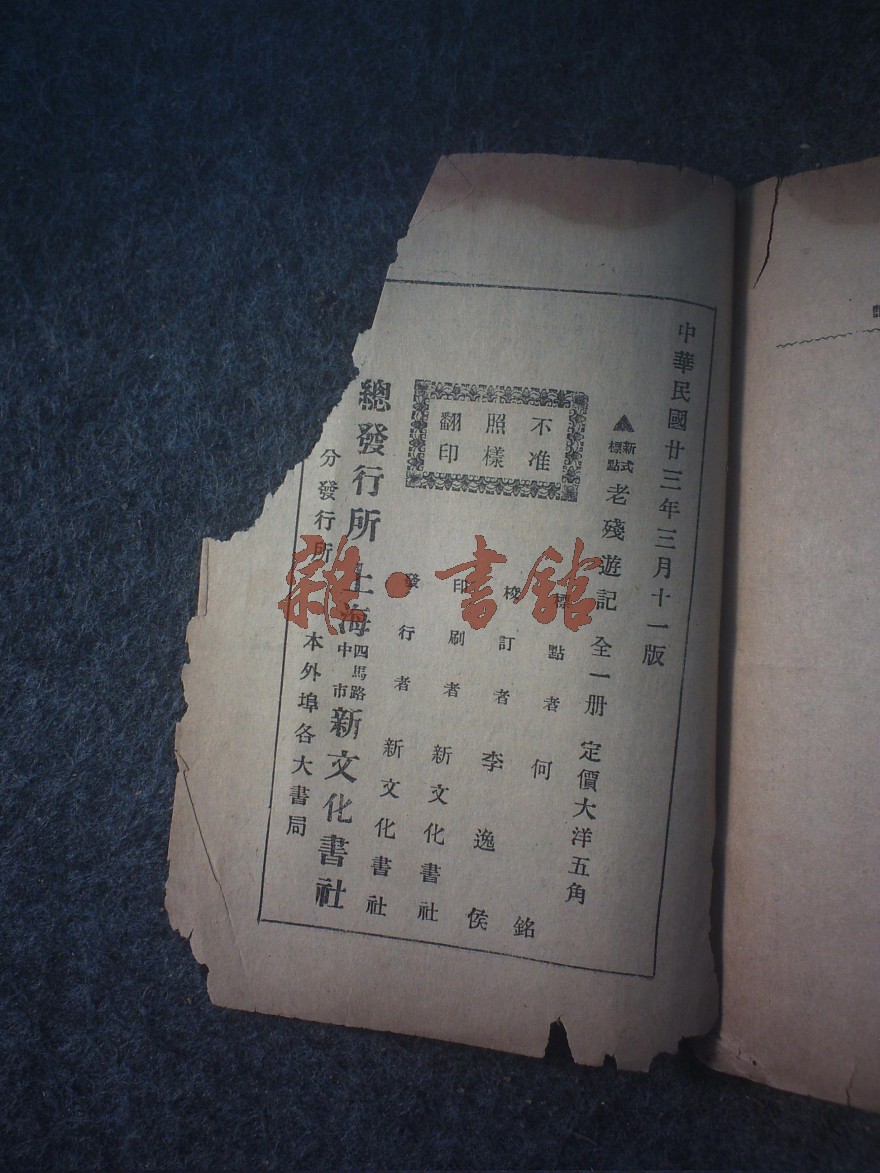 中華民國廿三年三月十一版
▲新式標點老殘遊記 全一册 定價大洋五角
不准
照樣
翻印
標點者 何銘
校訂者 李逸侯
印刷者 新文化書社
發行者 新文化書社
總發行所 上海四馬路中市新文化書社
分發行所 本外埠各大書局
雜·書館